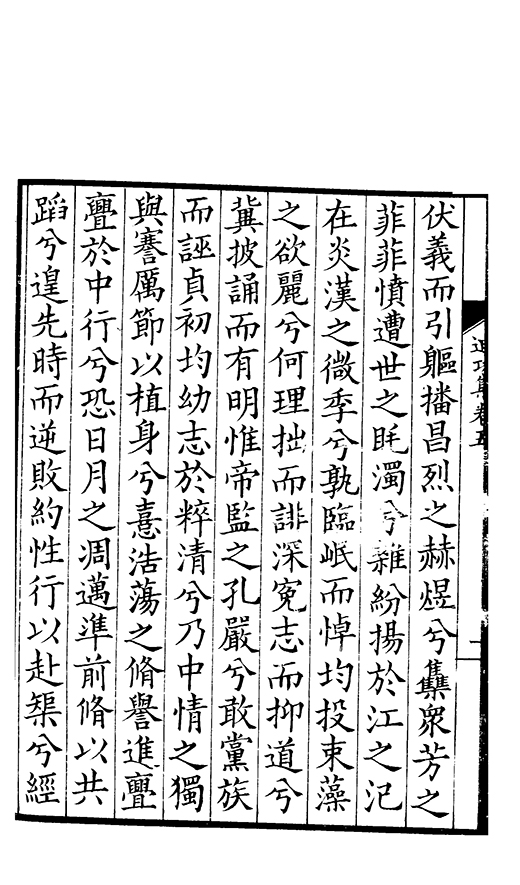 伏義而引軀播昌烈之赫煜兮集衆芳之
菲菲憤遭世之眊濁兮雜紛揚於江之汜
在炎漢之微季兮孰臨岷而悼均投束藻
之欲麗兮何理拙而誹深寃志而抑道兮
冀披誦而有明惟帝監之孔嚴兮敢黨族
而誣貞初均幼志於粹清兮乃中情之獨
與謇厲節以植身兮憙浩蕩之脩譽進亹
亹於中行兮恐日月之凋邁準前脩以共
蹈兮遑先時而逆敗約性行以赴榘兮經
集卷五